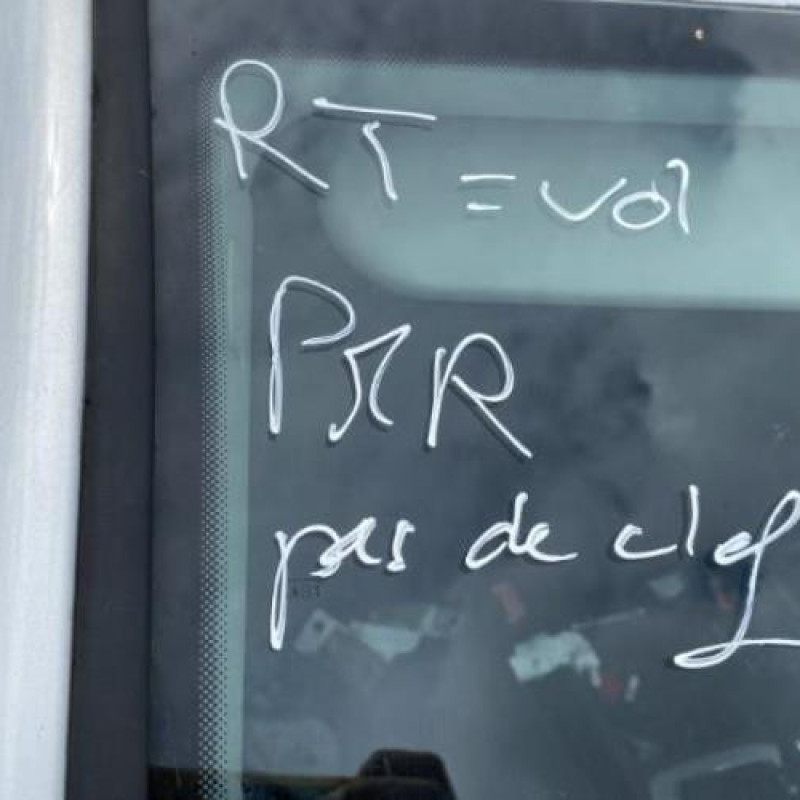 RT = vol
PSR
pas de clef